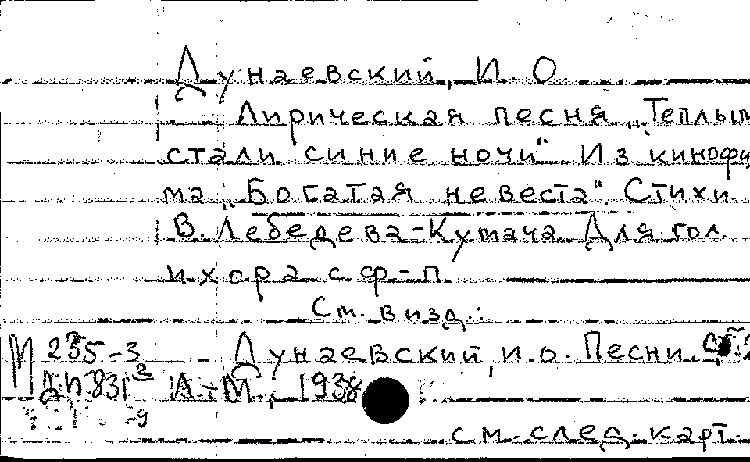 Дунаевский, И.О.
Лирическая песня „Теплым
стали синие ночи". Из кинофи
ма „Богатая невеста". Стихи
В. Лебедева-Кумача. Для гол.
и хора с ф-п.
См. в изд.:
М 235-3 Дунаевский, И.О. Песни.
Л.-М., 1938
см. след. карт.